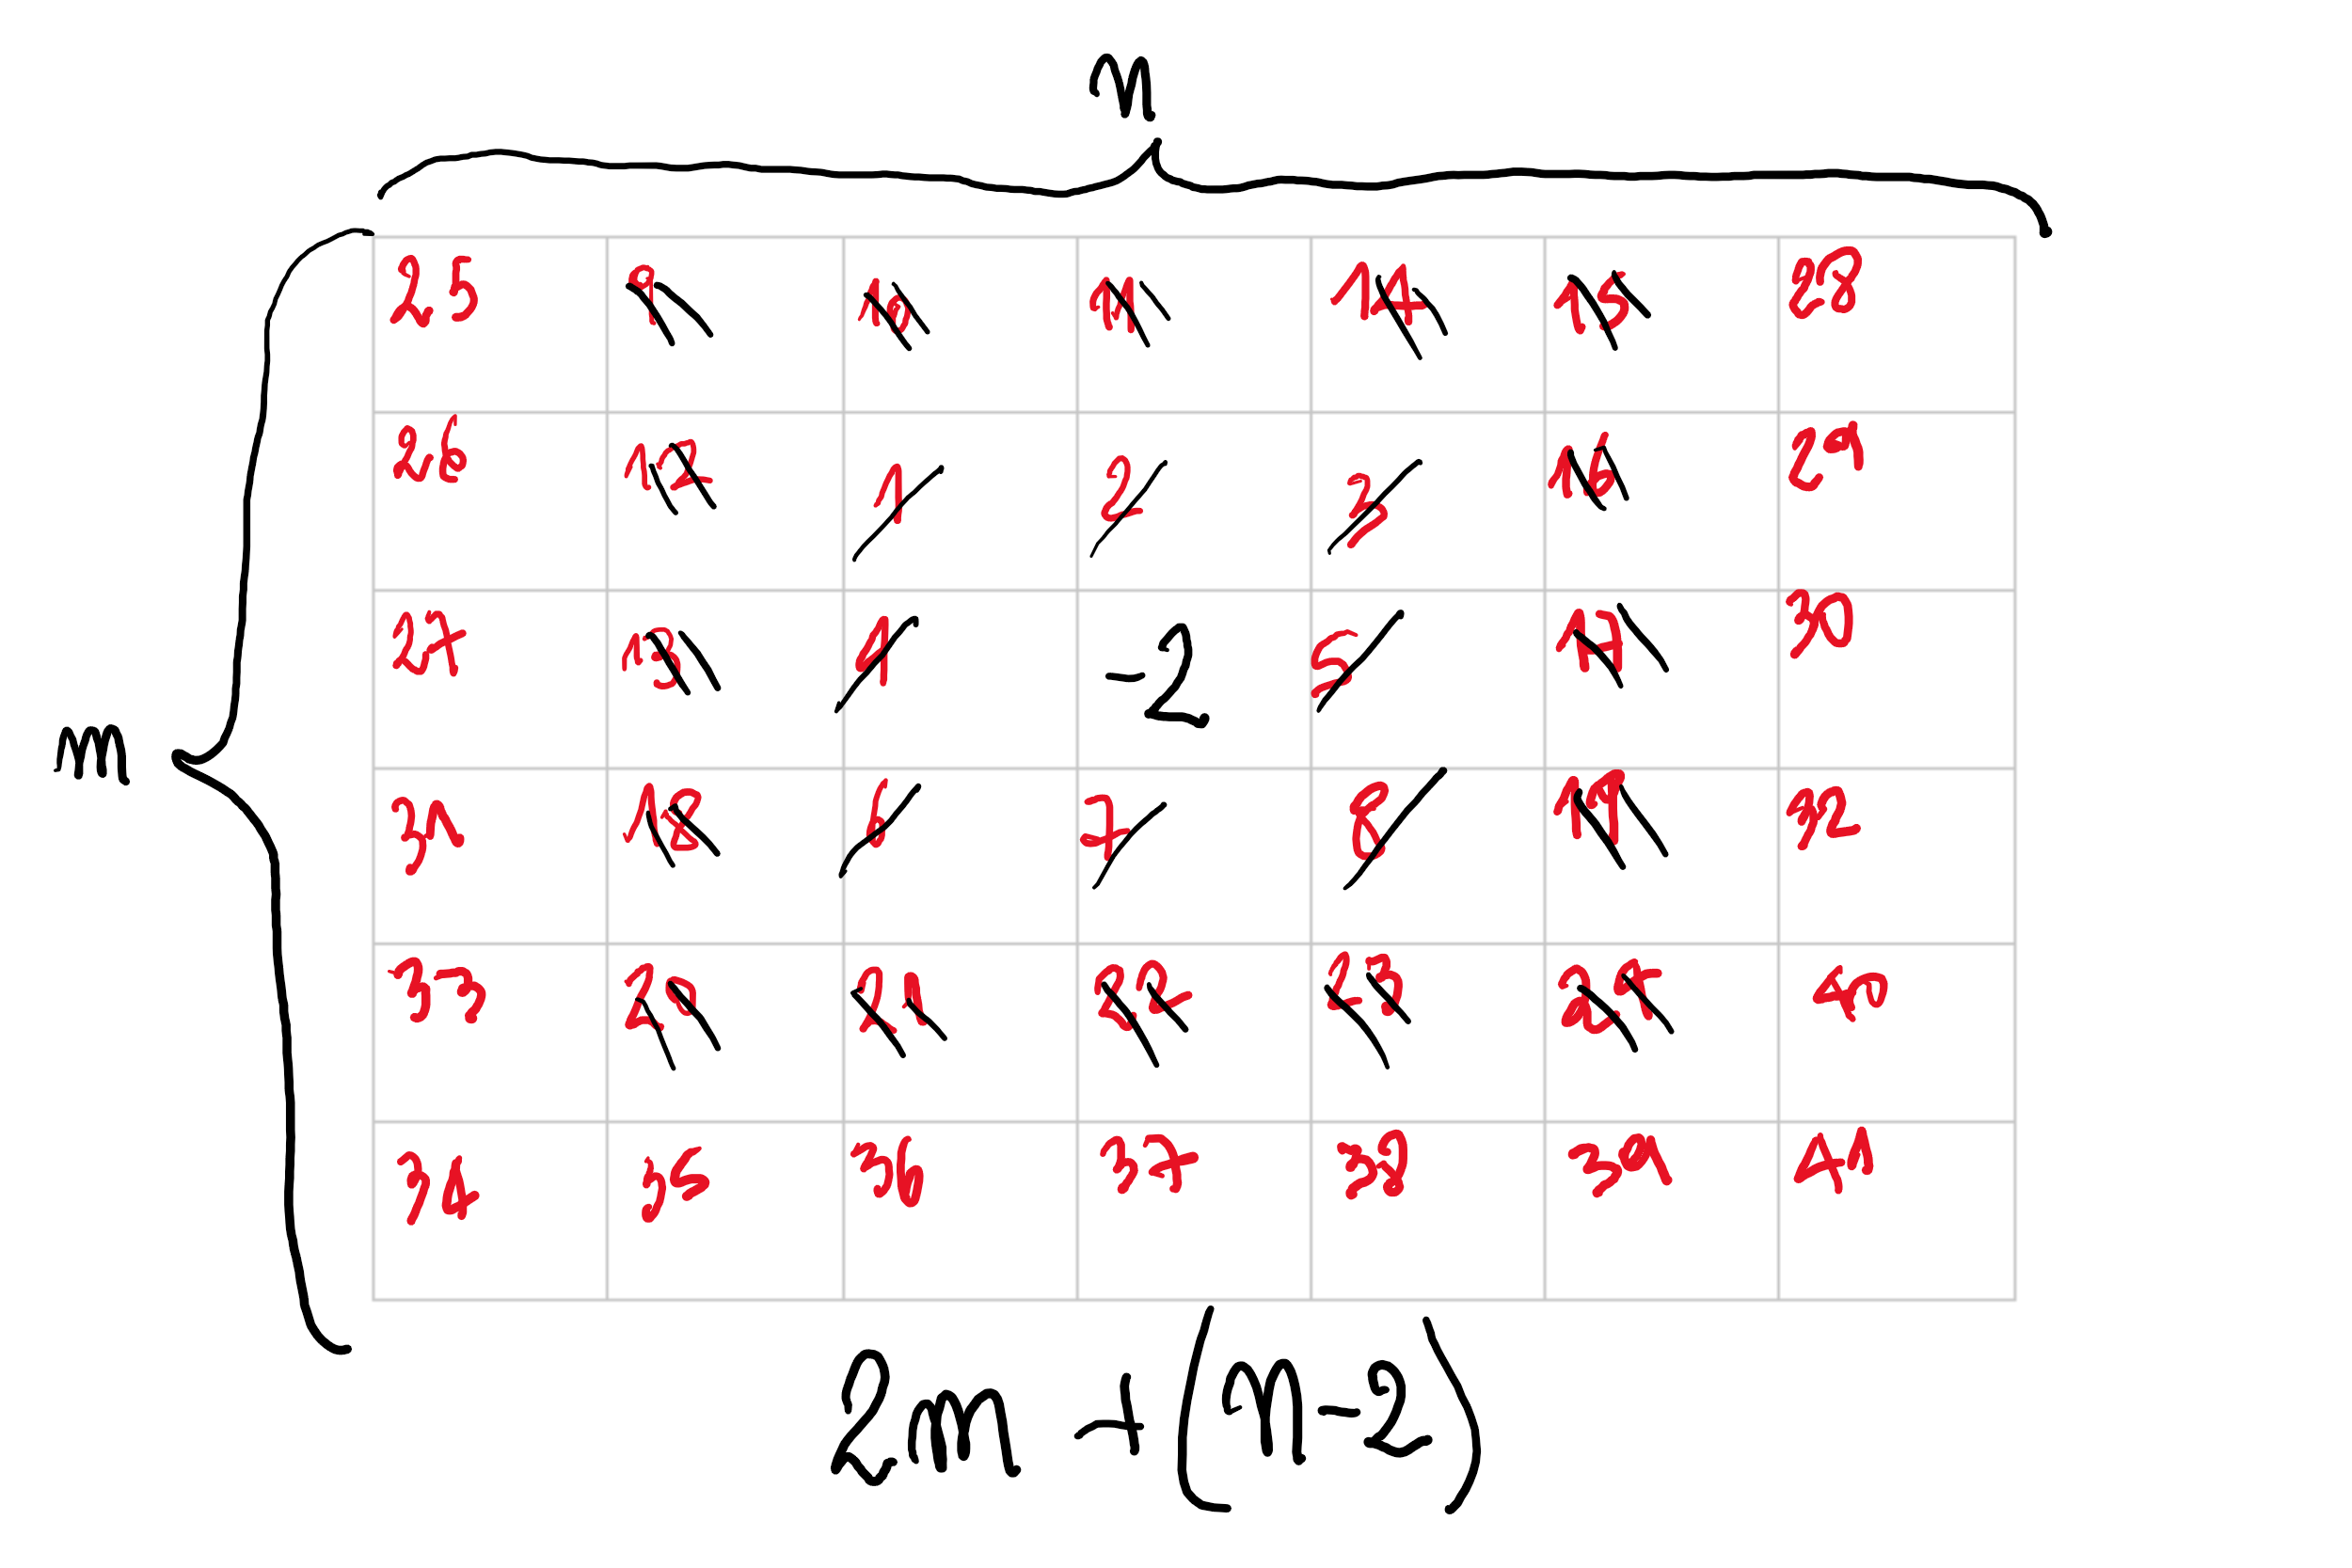 n
25 9 10 11 14 15 28
26 12 1 2 3 16 29
m 27 13 4 -2 5 17 30
31 18 6 7 8 19 32
33 20 21 22 23 24 40
34 35 36 37 38 39 41
2m + (n-2)